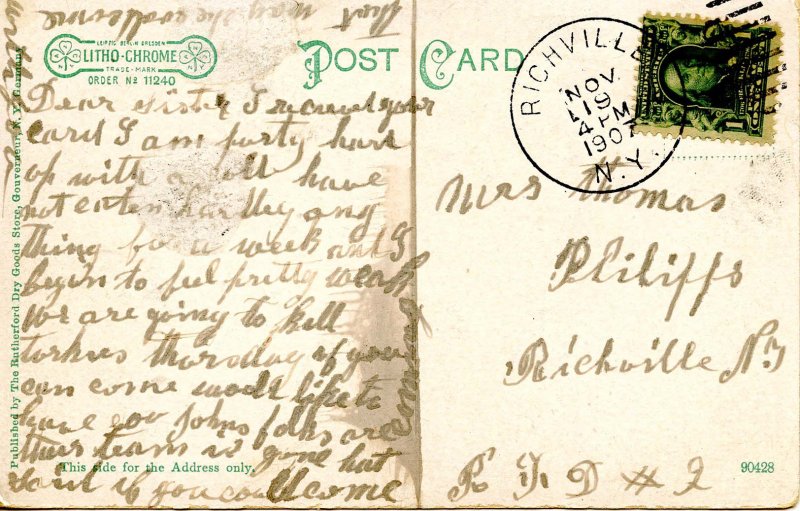 LEIPZIG BERLIN DRESDEN
LITHO-CHROME
TRADE-MARK
N Y
N Y
ORDER No 11240
POST CARD
RICHVILLE
NOV
19
4 PM
1907
N.Y.
1
Dear sister I received your
card I am porty hard
up with a cold have
not eaten hardley any
thing for a week and I
begin to feel pretty weak
We are going to kill
turkus thursday if you
can come would like to
have you Johns folks are
thur team is gone hat
if you could come
Mrs Thomas
Philiffs
Richville N.Y
R F D # 2
This side for the Address only.
90428
Published by The Rutherford Dry Goods Store, Gouverneur, N. Y. Germany